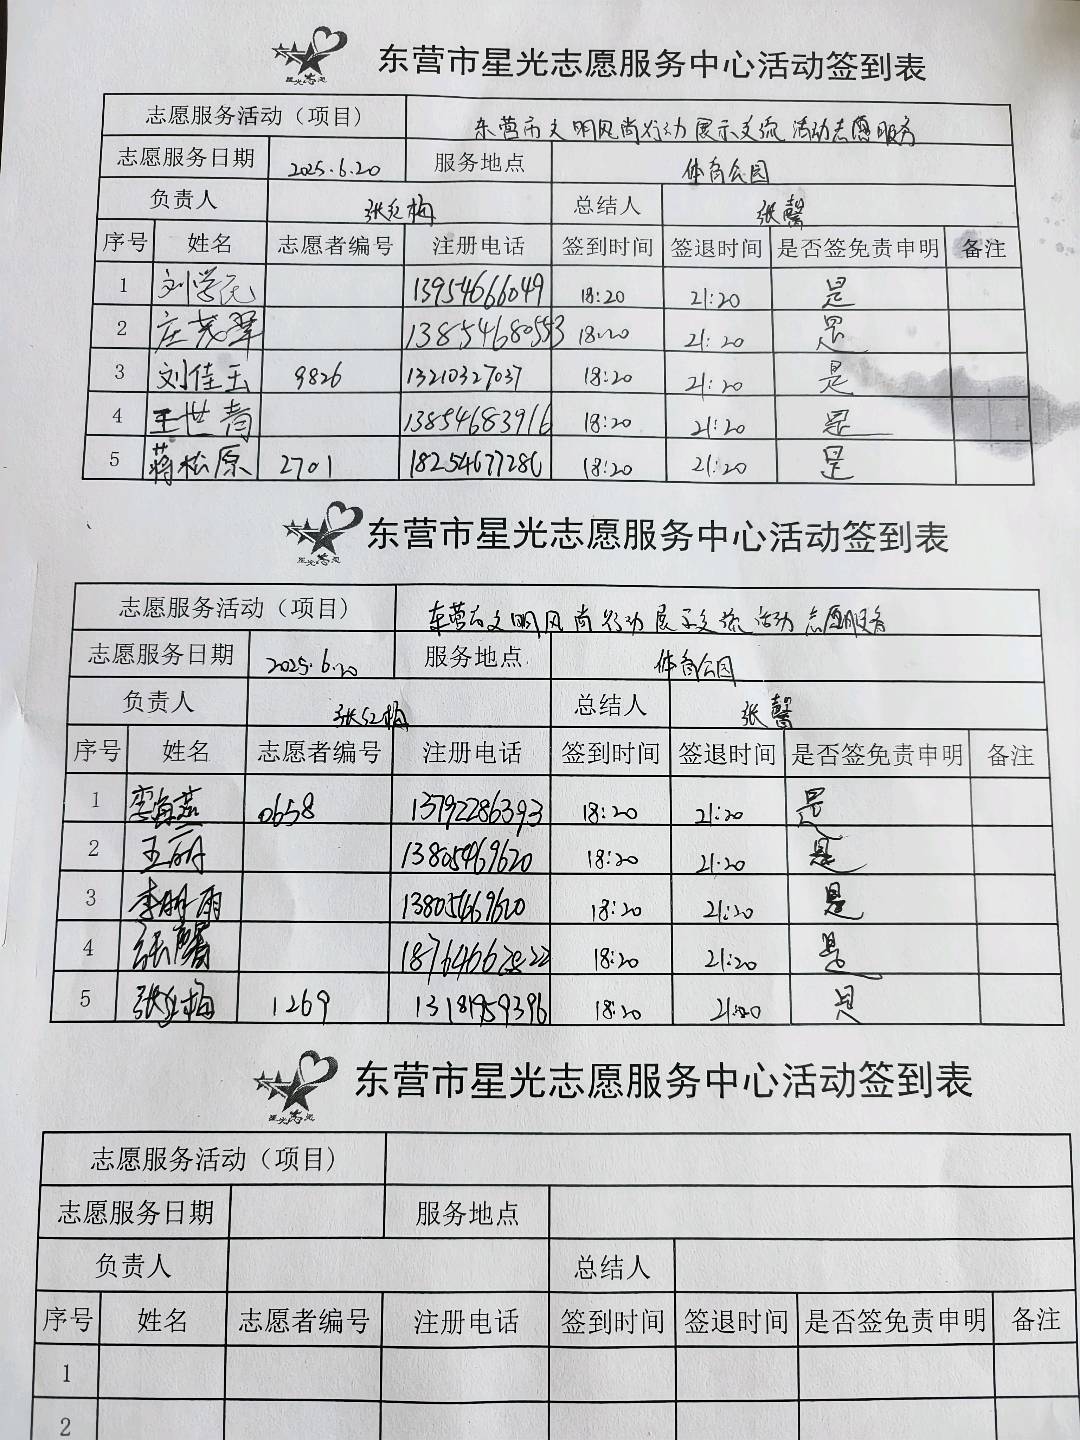 星光志愿
东营市星光志愿服务中心活动签到表
志愿服务活动（项目） 东营市文明风尚行动展示交流活动志愿服务
志愿服务日期 2025.6.20 服务地点 体育公园
负责人 张红梅 总结人 张馨
序号 姓名 志愿者编号 注册电话 签到时间 签退时间 是否签免责申明 备注
1 刘学元 13954666049 18:20 21:20 是
2 庄茂翠 13854680553 18:20 21:20 是
3 刘佳玉 9826 13210327037 18:20 21:20 是
4 王世青 13854683916 18:20 21:20 是
5 蒋松原 2701 18254677286 18:20 21:20 是
星光志愿
东营市星光志愿服务中心活动签到表
志愿服务活动（项目） 东营市文明风尚行动展示交流活动志愿服务
志愿服务日期 2025.6.20 服务地点 体育公园
负责人 张红梅 总结人 张馨
序号 姓名 志愿者编号 注册电话 签到时间 签退时间 是否签免责申明 备注
1 李海燕 0658 13792286393 18:20 21:20 是
2 王丽 13805469620 18:20 21:20 是
3 李明雨 13805469620 18:20 21:20 是
4 张馨 18:20 21:20 是
5 张红梅 1269 13181959396 18:20 21:20 是
星光志愿
东营市星光志愿服务中心活动签到表
志愿服务活动（项目）
志愿服务日期 服务地点
负责人 总结人
序号 姓名 志愿者编号 注册电话 签到时间 签退时间 是否签免责申明 备注
1
2